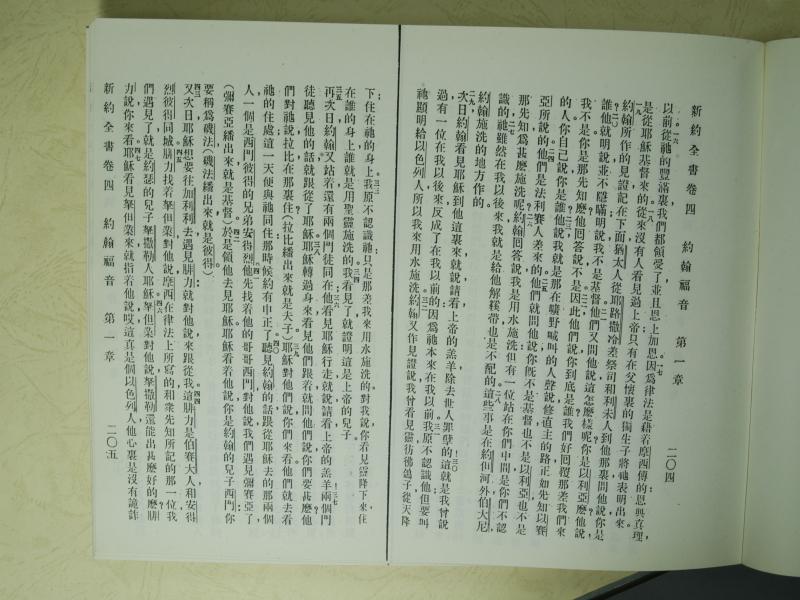 新約全書卷四 約翰福音 第一章 二〇四
以前從祂的豐滿裏我們都領受了並且恩上加恩因爲律法是藉着摩西傳的恩典真理
是從耶穌基督來的從來沒有人看見過上帝只有在父懷裏的獨生子將祂表明出來。
約翰所作的見證記在下面猶太人從耶路撒冷差祭司和利未人到他那裏問他說你是
誰他就明說並不隱瞞明說我不是基督他們又問他說這怎麽樣呢你是以利亞麽他說
我不是你是那先知麽他囘答說不是因此他們說你到底是誰我們好囘覆那差我們來
的人你自己說你是誰他說我就是那在曠野喊叫的人聲說修直主的路正如先知以賽
亞所說的他們是法利賽人差來的他們就問他說你旣不是基督也不是以利亞也不是
那先知爲甚麽施洗呢約翰囘答說我是用水施洗但有一位站在你們中間是你們不認
識的祂雖然在我以後來我就是給他解鞋帶也是不配的這些事是在約但河外伯大尼
約翰施洗的地方作的。
次日約翰看見耶穌到他這裏來就說請看上帝的羔羊除去世人罪孽的這就是我曾說
過有一位在我以後來反成了在我以前的因爲祂本來在我以前我原不認識他但要叫
祂顯明給以色列人所以我來用水施洗約翰又作見證說我曾看見靈彷彿鴿子從天降
下住在祂的身上我原不認識祂只是那差我來用水施洗的對我說你看見靈降下來住
在誰的身上誰就是用聖靈施洗的我看見了就證明這是上帝的兒子
再次日約翰又站着還有兩個門徒同在他看見耶穌行走就說請看上帝的羔羊兩個門
徒聽見他的話就跟從了耶穌耶穌轉過身來看見他們跟着就問他們說你們要甚麽他
們對祂說拉比在那裏住(拉比繙出來就是夫子)耶穌對他們說你們來看他們就去看
祂的住處這一天便與祂同住那時候約有申正了聽見約翰的話跟從耶穌去的那兩個
人一個是西門彼得的兄弟安得烈他先找着他的哥哥西門對他說我們遇見彌賽亞了
(彌賽亞繙出來就是基督)於是領他去見耶穌耶穌看着他說你是約翰的兒子西門你
要稱爲磯法(磯法繙出來就是彼得)
又次日耶穌想要往加利利去遇見腓力就對他說來跟從我這腓力是伯賽大人和安得
烈彼得同城腓力找着拏但業對他說摩西在律法上所寫的和衆先知所記的那一位我
們遇見了就是約瑟的兒子拏撒勒人耶穌拏但業對他說拏撒勒還能出甚麽好的麽腓
力說你來看耶穌看見拏但業來就指着他說哎這真是個以色列人他心裏是沒有詭詐
新約全書卷四 約翰福音 第一章 二〇五